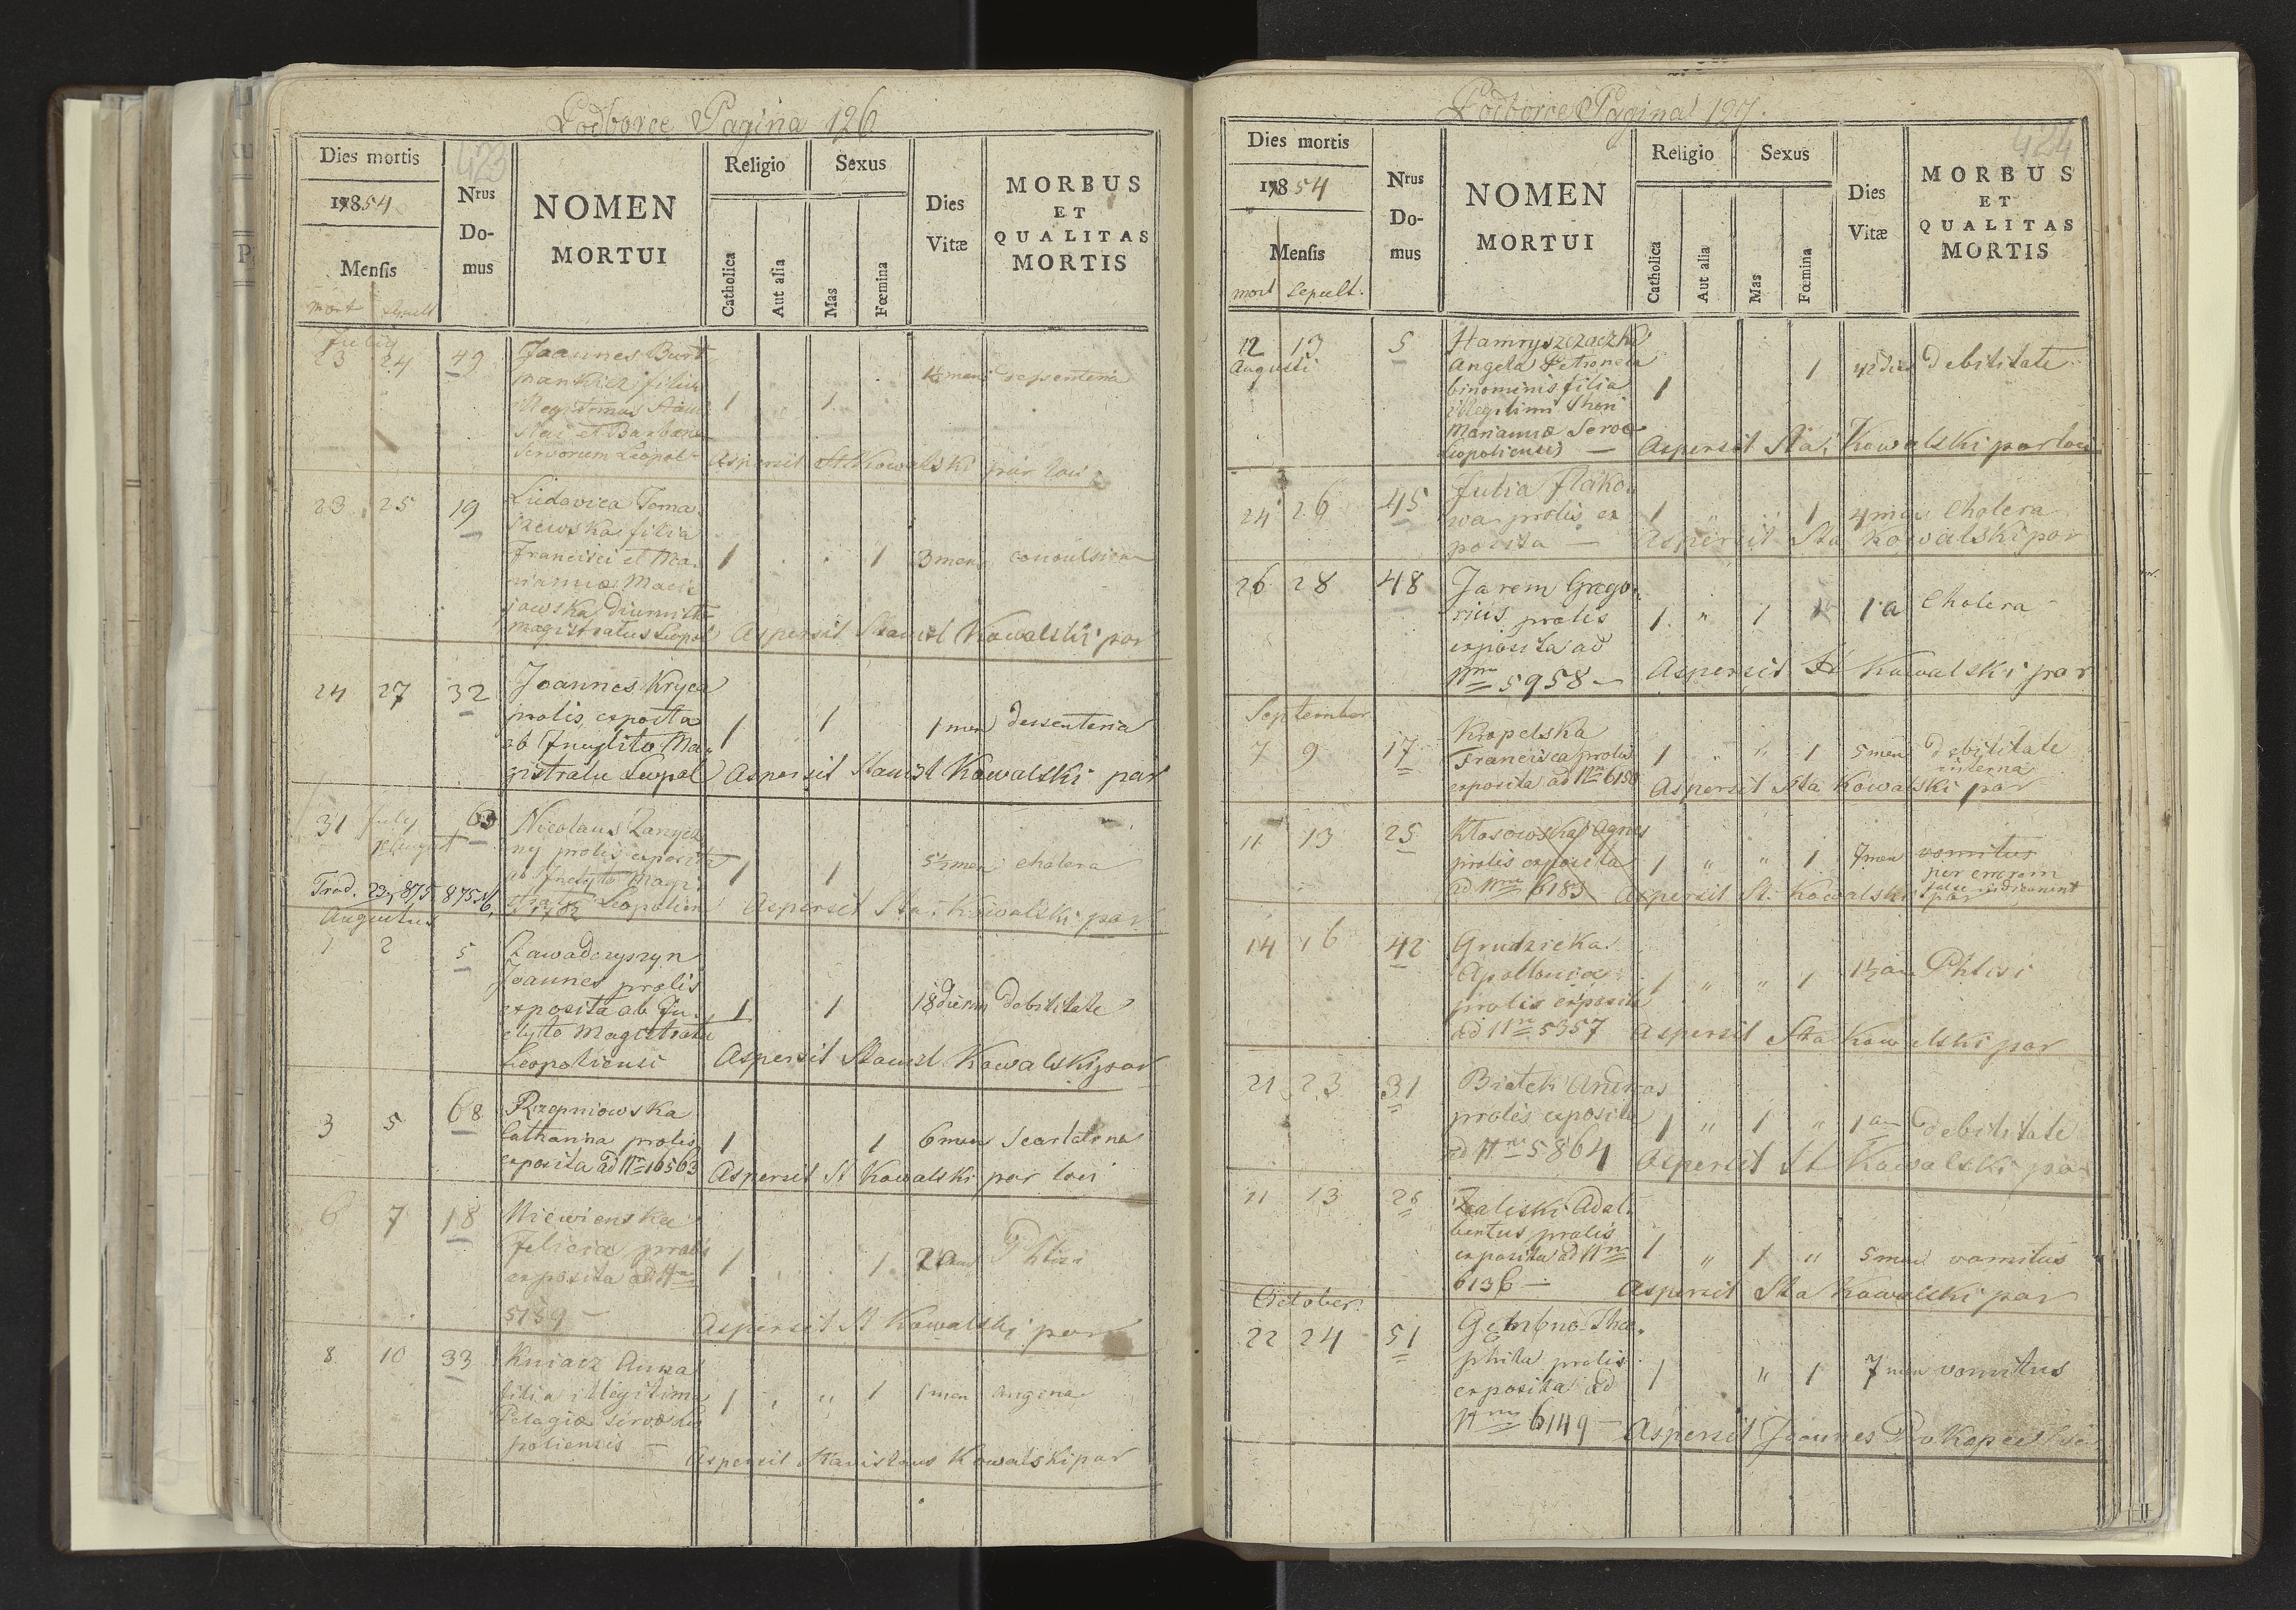 Podborce Pagina 126
423
Dies mortis
1854
Mensis
mort sepult
Nrus Do-mus
NOMEN MORTUI
Religio
Catholica
Aut alia
Sexus
Mas
Fœmina
Dies Vitæ
MORBUS ET QUALITAS MORTIS
July
23 24 49 Joannes Burt
mankiez filius
illegitimus
et Barbara
servorum Leopol
1 1 1½ mens dessenteria
Aspersit St Kowalski par loci
23 25 19 Ludovica Toma
szewska filia
Francisci et Ma
riannæ Macie
jowska diurniste
magistratus Leopol
1 1 3 mens convulsion
Aspersit Stanisl Kowalski par
24 27 32 Joannes Kryca
prolis exposita
ab Inclyto Ma
gistratu Leopol
1 1 1 men dessenteria
Aspersit Stanisl Kowalski par
31 July 63 Nicolaus Zanycz
ny prolis exposita
ab Inclyto Magi
stratu Leopolien
1 1 5½ men cholera
Aspersit Sta. Kowalski par
Trad. 23/7 875 875 N 6.
Augustus
1 2 5 Zawadczyszyn
Joannes prolis
exposita ab In
clyto Magistratu
Leopoliensi
1 1 18 dierum debilitate
Aspersit Stanisl Kowalski par
3 5 68 Rzepniowska
Catharina prolis
exposita ad Nr 16563
1 1 6 men Scarlatina
Aspersit St Kowalski par loci
6 7 18 Niewienska
Felicia prolis
exposita ad Nr
5159 —
1 1 2 ann Phtisi
Aspersit St Kowalski par
8 10 33 Kniacz Anna
filia illegitima
Pelagiæ servæ Leo
poliensis —
1 " 1 1 men angina
Aspersit Stanislaus Kowalski par
Podborce Pagina 127.
424
Dies mortis
1854
Mensis
mort Sepult.
Nrus Do-mus
NOMEN MORTUI
Religio
Catholica
Aut alia
Sexus
Mas
Fœmina
Dies Vitæ
MORBUS ET QUALITAS MORTIS
12 13 5 Hamryszczaczka
Augusti
Angela Petronela
binominis filia
illegitimi thori
Mariannæ Servæ
Leopoliensis —
1 1 42 dies Debilitate
Aspersit Sta. Kowalski par loci
24 26 45 Julia Flako
wa prolis ex
posita —
1 " " 1 4 men Cholera
Aspersit Sta Kowalski par
26 28 48 Jarem Grego
rius prolis
exposita ad
Nrm 5958 —
1 " 1 1 a Cholera
Aspersit St Kowalski par
September
7 9 17 Kropelska
Francisca prolis
exposita ad Nrm 6180
1 " " 1 5 men Debilitate
interna
Aspersit Sta Kowalski par
11 13 25 Kłosowska Agnes
prolis exposita
ad Nrm 6183
1 " " 1 7 men vomitus
per errorem
Aspersit St. Kowalski par
14 16 42 Grudzicka
Apollonia
prolis exposita
ad Nrm 5357
1 " " 1 1½ an Phtisi
Aspersit Sta Kowalski par
21 23 31 Biatek Andreas
prolis exposita
ad Nrm 5864
1 " 1 " 1 an Debilitate
Aspersit St Kowalski par
11 13 25 Zaliski Adal
bertus prolis
exposita ad Nrm
6136 —
1 " 1 " 5 men vomitus
Aspersit Sta Kowalski par
October
22 24 51 Gembno
phila prolis
exposita ad
Nrm 6149 —
1 " 1 7 men vomitus
Aspersit Joannes